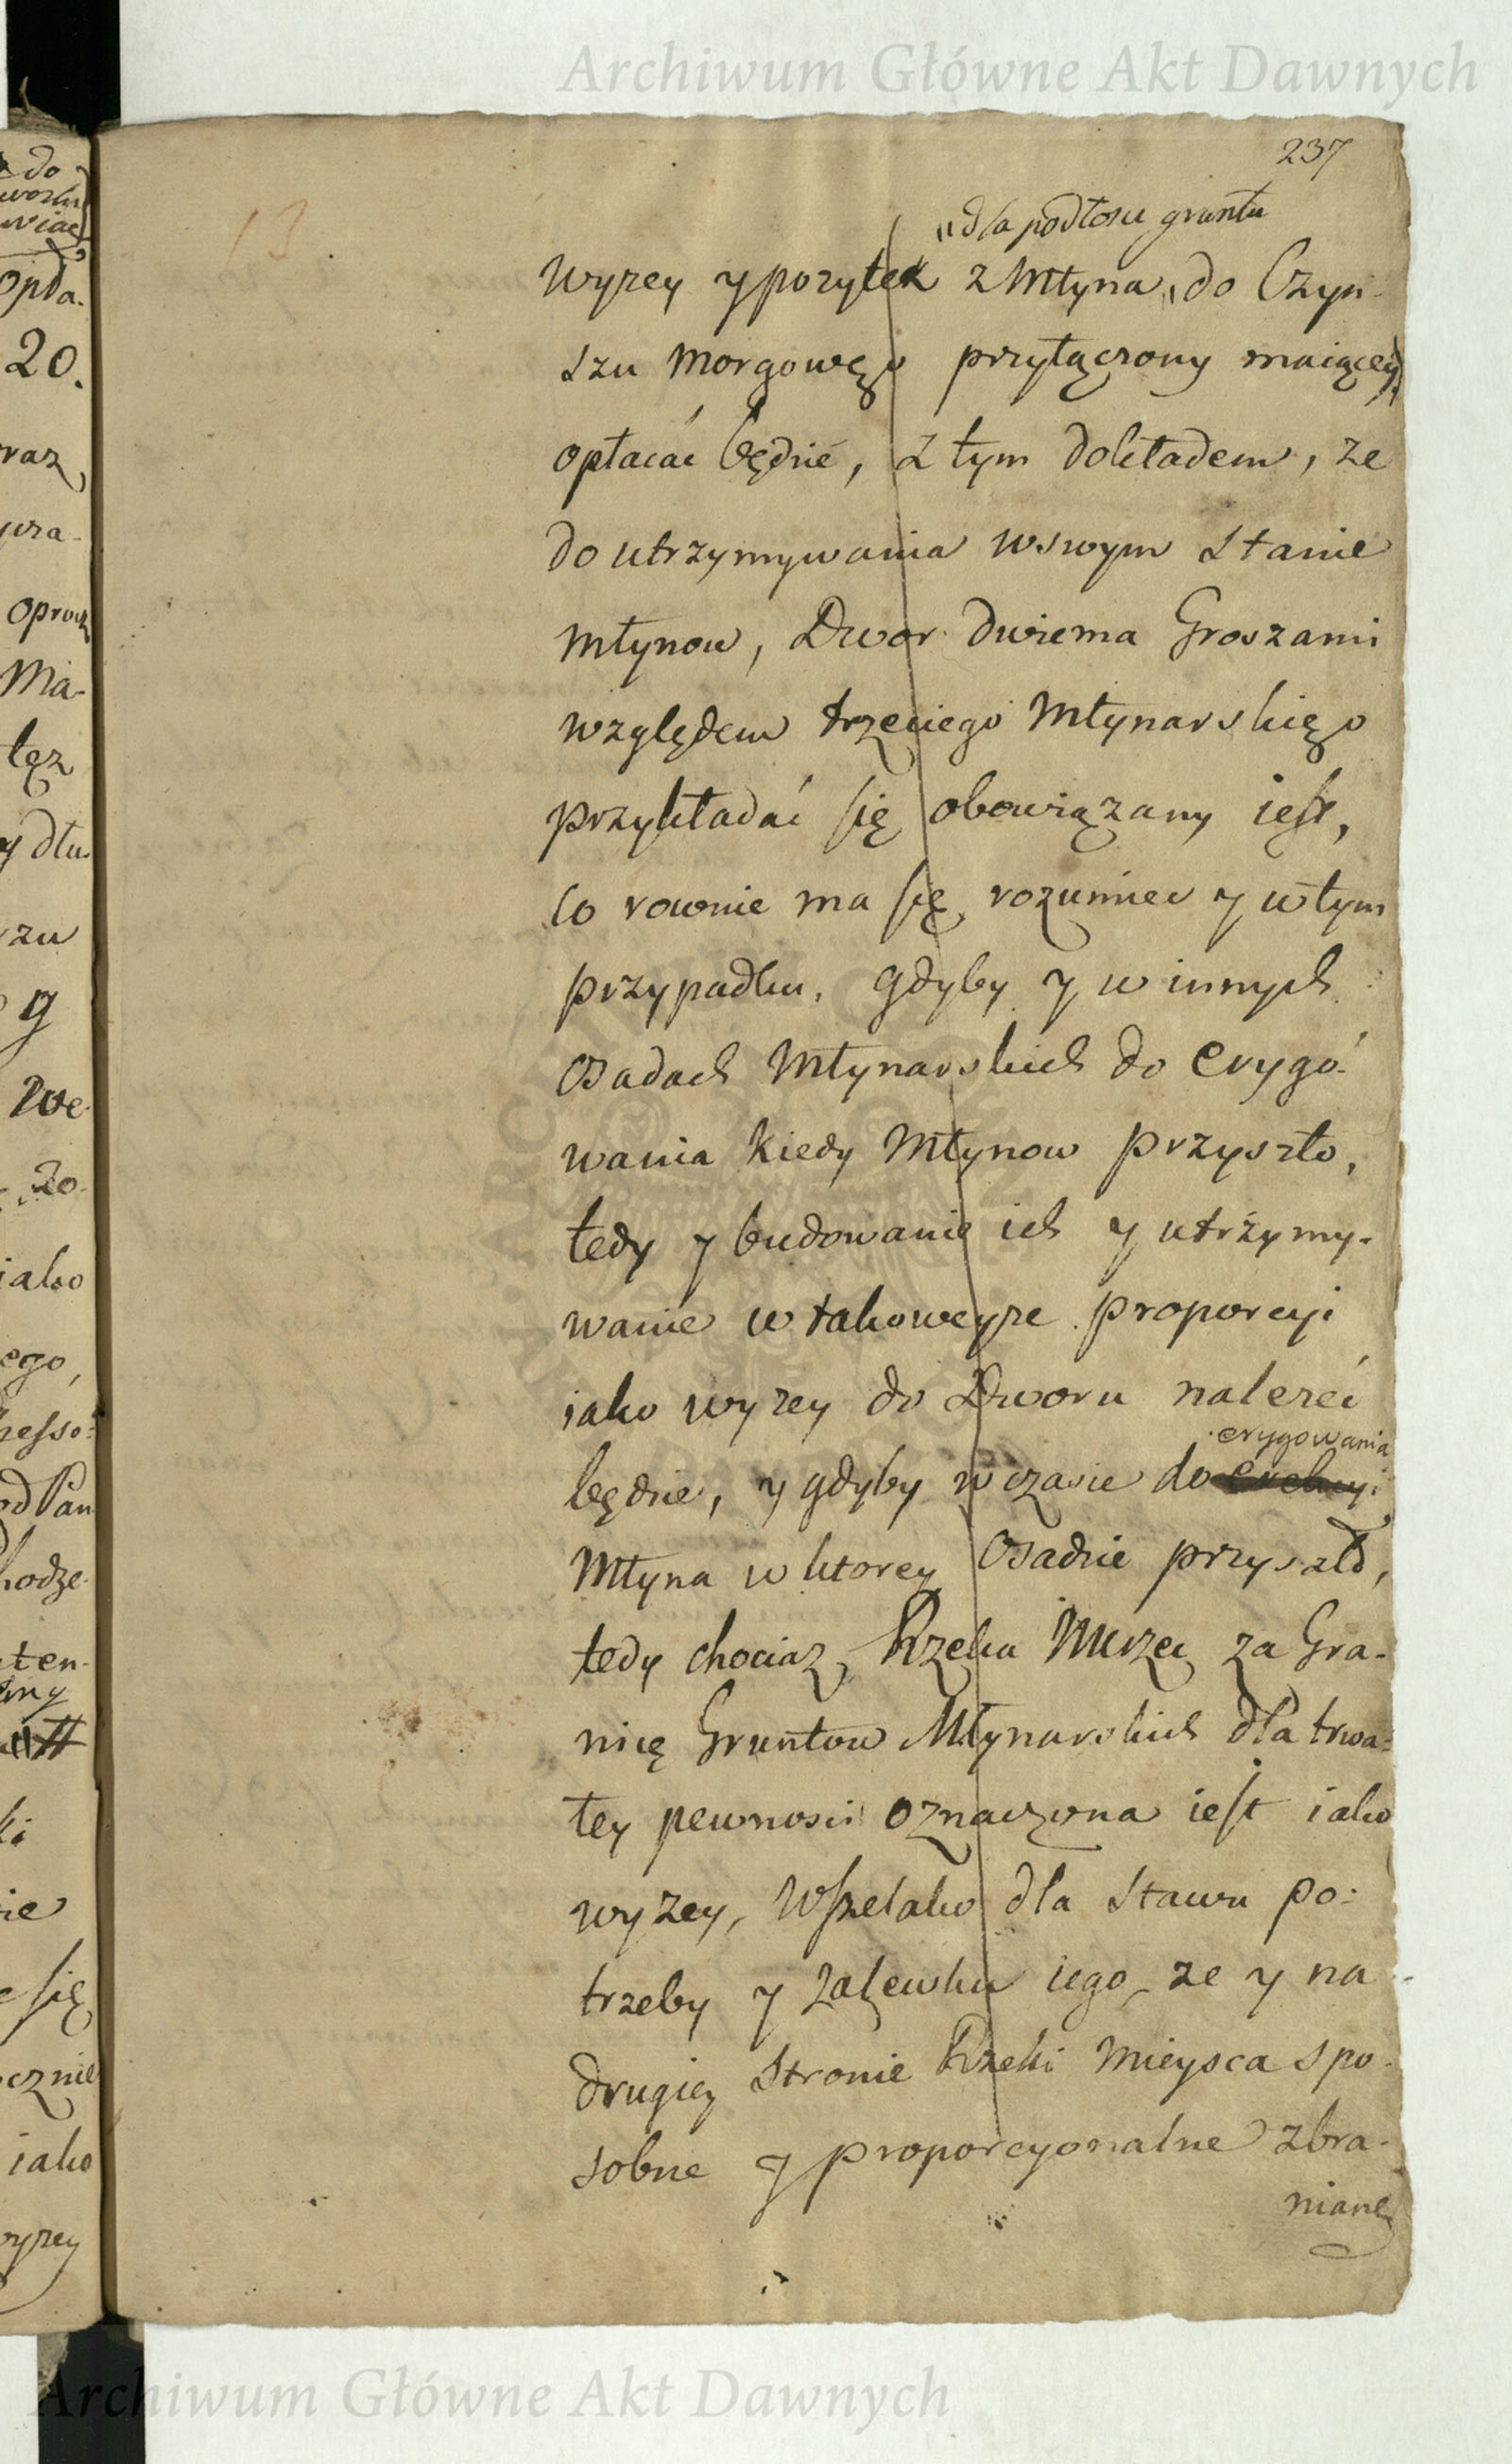 Archiwum Główne Akt Dawnych
237
13
"dla podłosu gruntu
wyzey y pozytek z Młyna " do Czyn-
szu Morgowego przyłączony maiącey
opłacać będzie, z tym dokładem, ze
do utrzymywania w swym stanie
Młynow, Dwor dwiema Groszami
względem trzeciego Młynarskiego
przykładać się obowiązany iest,
co rownie ma się rozumiec y w tym
przypadku, gdyby y w innych
Osadach Młynarskich do erygo-
wania kiedy Młynow przyszło,
tedy y budowanie ich y utrzymy-
wanie w takoweyze proporcyi
iako wyzey do Dworu nalezeć
erygowania
będzie, y gdyby w czasie do erekcyi
Młyna w ktorey Osadzie przyszło,
tedy chociaz Rzeka Nurzec za Gra-
nicę Gruntow Młynarskich dla trwa-
łey pewnosci oznaczona iest iako
wyzey, Wszelako dla Stawu po:
trzeby y zalewku iego, ze y na
drugiey Stronie Rzeki mieysca spo-
sobne y proporcyonalne zbra-
niane
do
opła.
20.
oprocz
Ma-
tęz
y dłu-
zu
g
20.
iako
ego,
od Pan
hodze-
ki
ie
się
cznie
iako
wyzey
Archiwum Główne Akt Dawnych